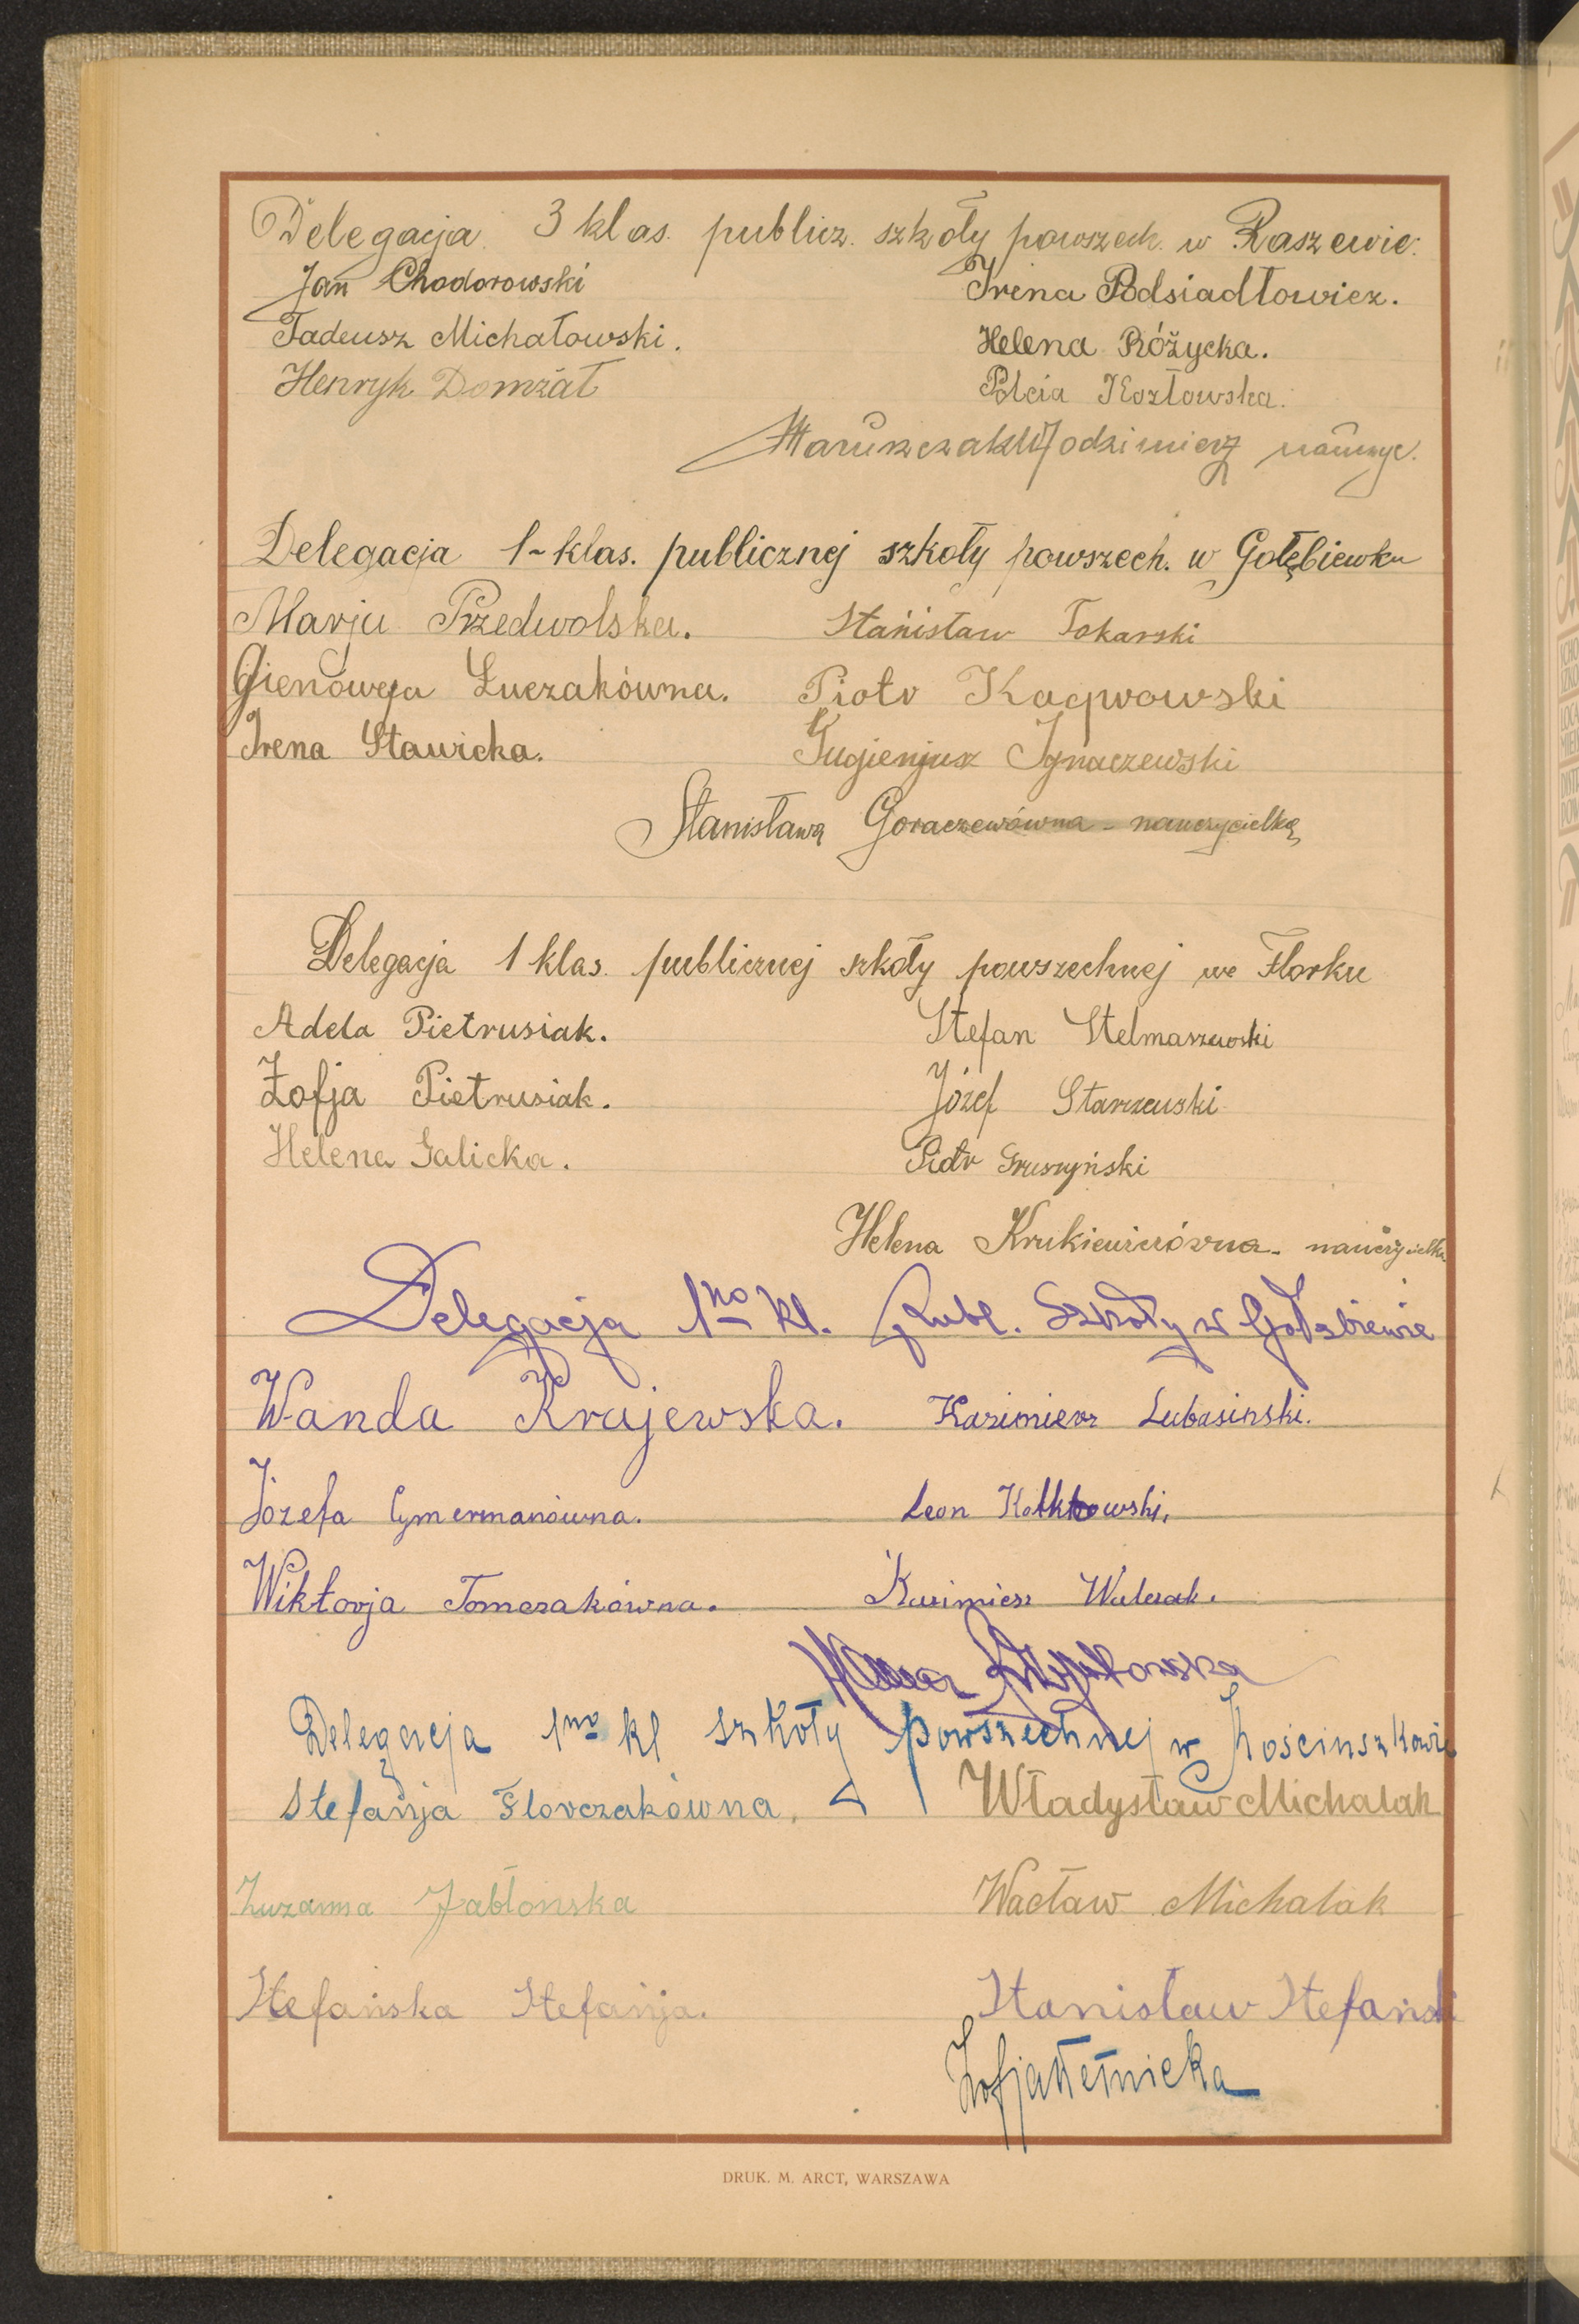 Delegacja 3 klas. publicz. szkoły powszech. w Raszewie.
Jan Chodorowski Irena Podsiadłowicz.
Tadeusz Michałowski. Helena Różycka.
Henryk Domżał Polcia Kozłowska.
Maruszczak Włodzimierz nauczyc.
Delegacja 1-klas. publicznej szkoły powszech. w Gołębiewku
Marja Przedwolska. Stanisław Tokarski
Gienowefa Łuczakówna. Piotr Kacprowski
Irena Stawicka. Eugienjusz Ignaczewski
Stanisława Goraczewówna - nauczycielka
Delegacja 1 klas. publicznej szkoły powszechnej we Florku
Adela Pietrusiak. Stefan Stelmaszewski
Zofja Pietrusiak. Józef Starzewski
Helena Galicka. Piotr Gruszyński
Helena Krukiewiczówna - nauczycielka
Delegacja 1no kl. Publ. Szkoły w Gołębiewie
Wanda Krajewska. Kazimierz Lubasinski.
Józefa Cymermanówna. Leon
Wiktorja Tomczakówna. Kazimierz Walczak.
Delegacja 1no kl szkoły powszechnej w Kościuszkowie
Stefanja Florczakówna. Władysław Michalak
Zuzanna Jabłonska Wacław Michalak
Stefańska Stefanja. Stanisław Stefański
Zofja Letnicka
DRUK. M. ARCT, WARSZAWA